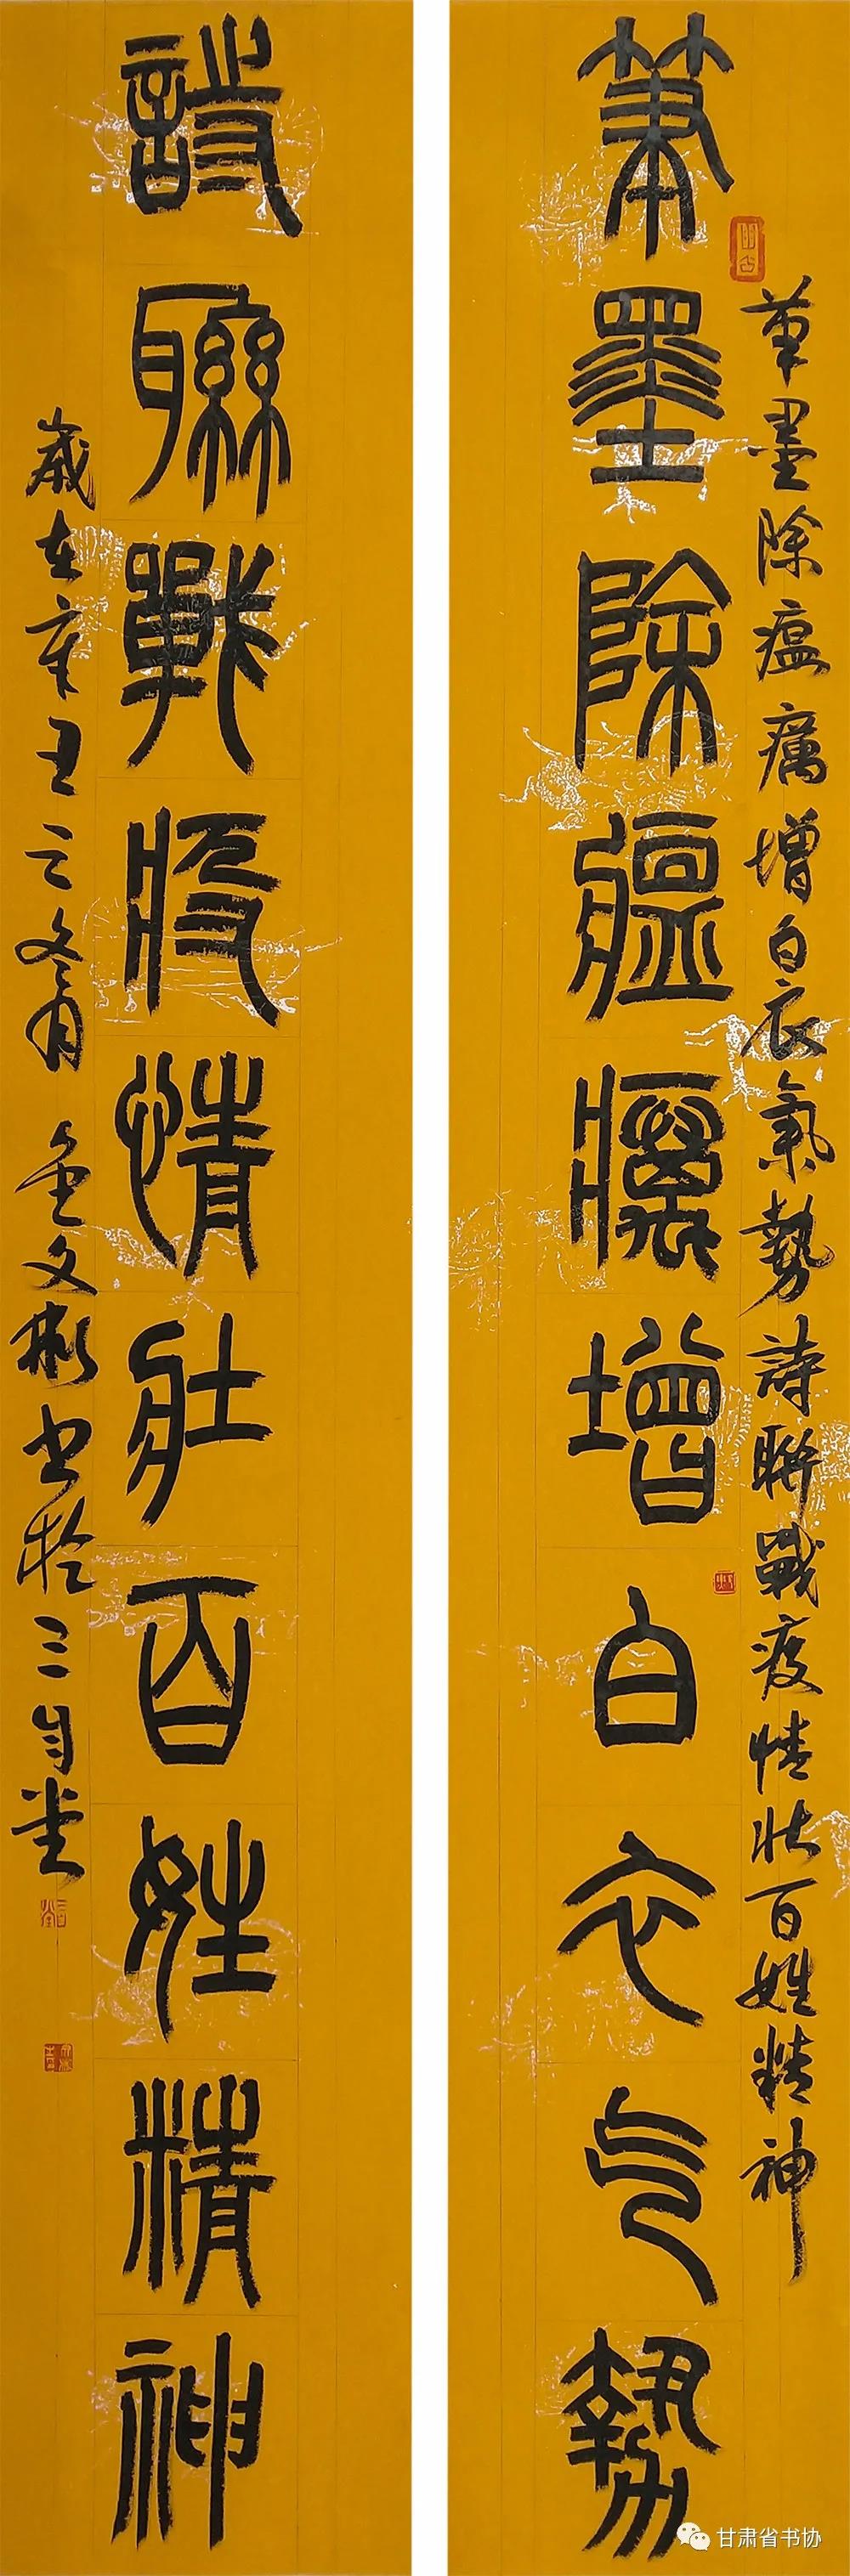 筆墨除瘟癘增白衣氣勢詩聯戰疫情壯百姓精神
筆墨除瘟癘增白衣气勢
詩聯戰疫情壯百姓精神
歲在辛丑之冬月 金文彬書於三自堂
甘肃省书协